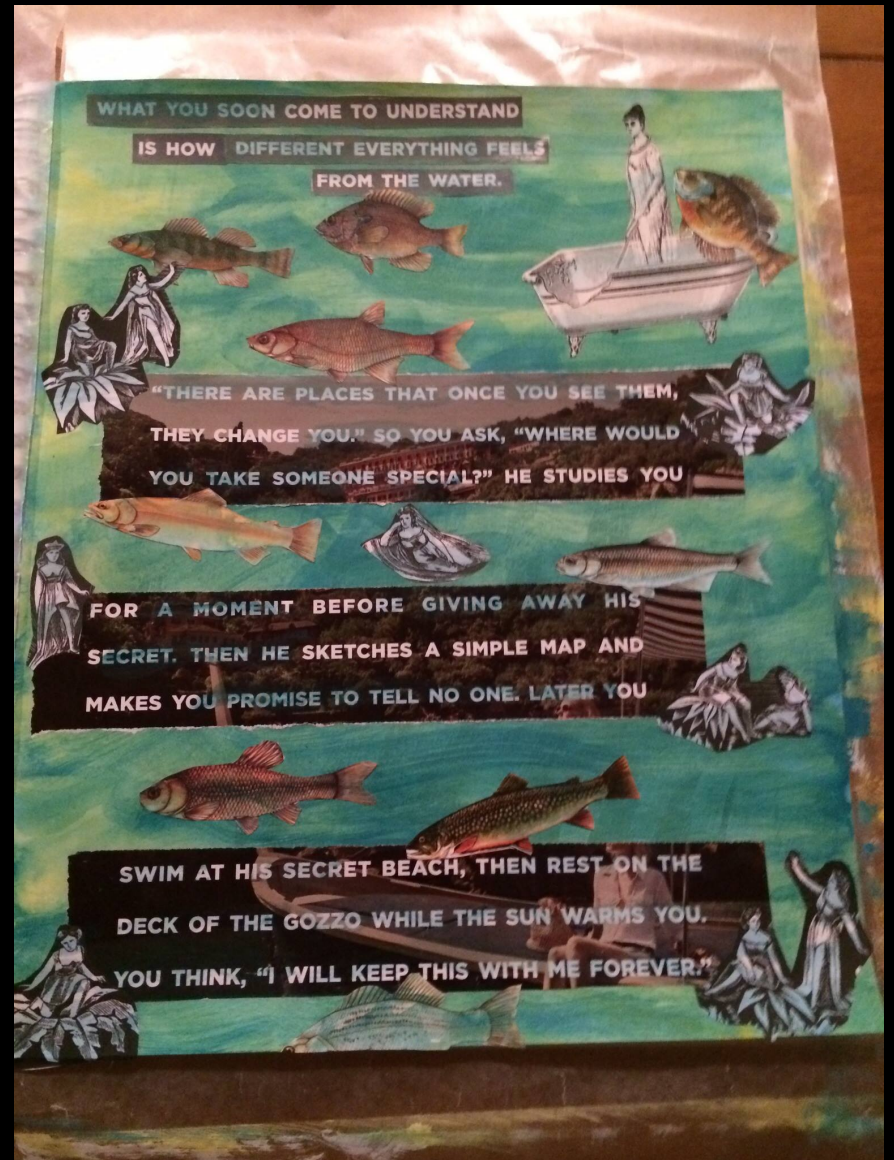 WHAT YOU SOON COME TO UNDERSTAND
IS HOW DIFFERENT EVERYTHING FEELS
FROM THE WATER.
“THERE ARE PLACES THAT ONCE YOU SEE THEM,
THEY CHANGE YOU.” SO YOU ASK, “WHERE WOULD
YOU TAKE SOMEONE SPECIAL?” HE STUDIES YOU
FOR A MOMENT BEFORE GIVING AWAY HIS
SECRET. THEN HE SKETCHES A SIMPLE MAP AND
MAKES YOU PROMISE TO TELL NO ONE. LATER YOU
SWIM AT HIS SECRET BEACH, THEN REST ON THE
DECK OF THE GOZZO WHILE THE SUN WARMS YOU.
YOU THINK, “I WILL KEEP THIS WITH ME FOREVER.”